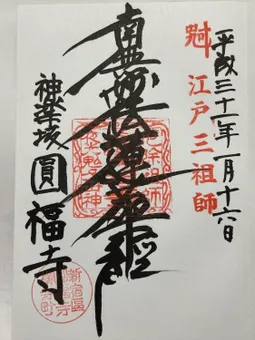 平成三十一年一月十六日
江戸三祖師
南無妙法蓮華経
神楽坂
圓福寺